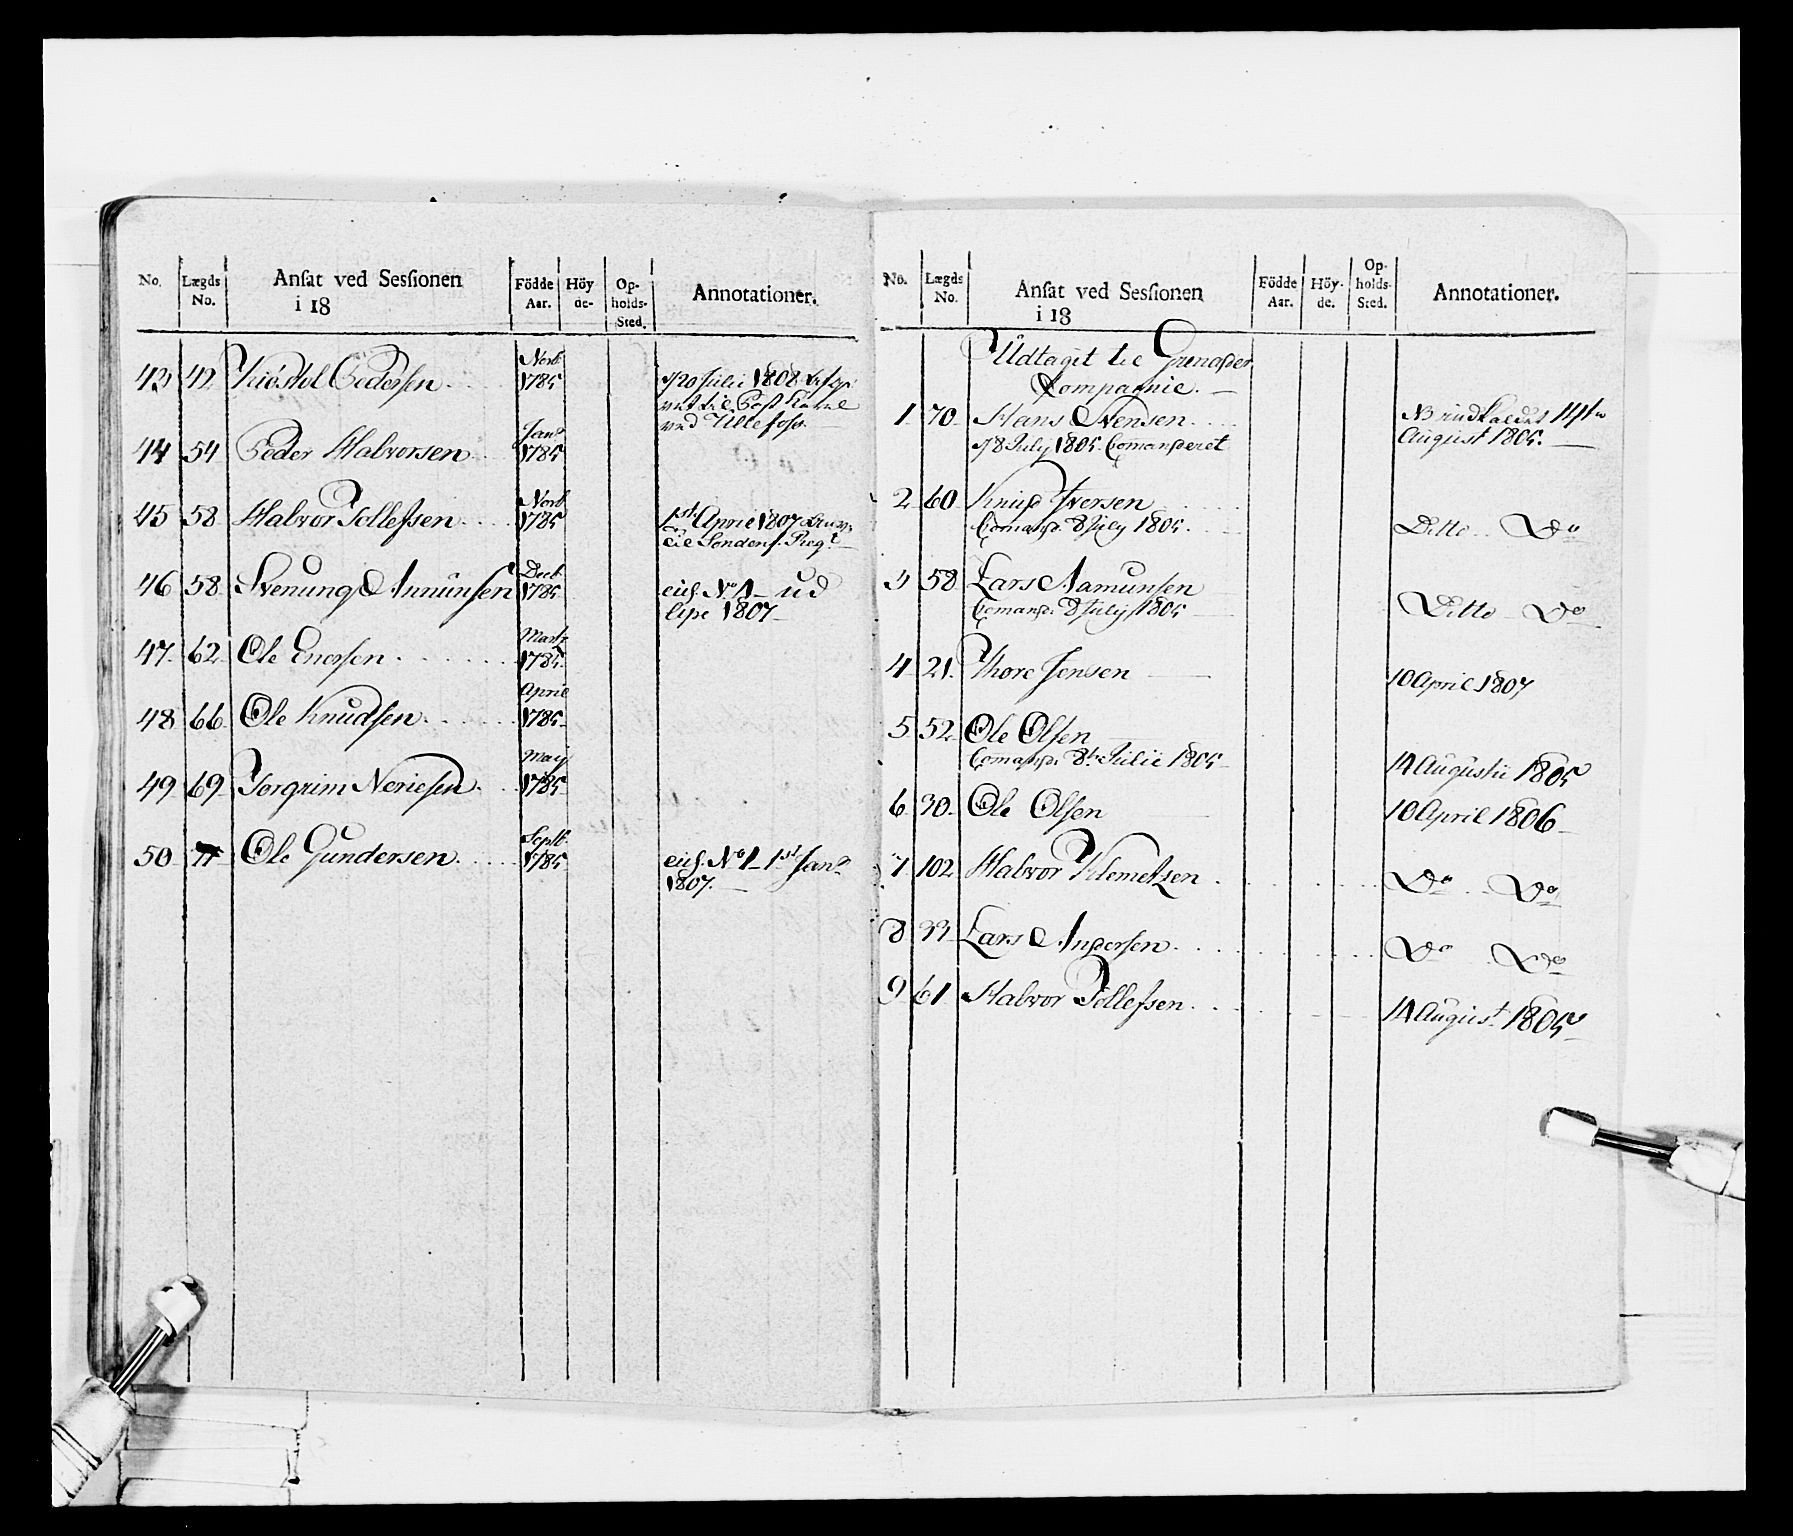 No. Lægds No. Ansat ved Sessionen i 18 Födde Aar. Höyde- Opholds-Sted. Annotationer.
43 42 Pedersen Novb 1785 20 Julii 1808
til Post
ved Ullefoss
44 54 Peder Halvorsen Janr 1785
45 58 Halvor Tollefsen Novb 1785 1st April 1807
Søndenf. Regt
46 58 Svenung Amunsen Decb 1785 No 1
1807
47 62 Ole Enersen Martz 1785
48 66 Ole Knudsen April 1785
49 69 Torgrim Neriesen May 1785
50 Ole Gundersen Septb 1785 No 1 1st Janr
1807.
No. Lægds No. Ansat ved Sessionen i 18 Födde Aar. Höy-de. Op-holds-Sted. Annotationer.
Udtaget til Grenader
Compagnie.
1 70 Hans Svensen NB indkaldet 14de
8 July 1805. Comanderet August 1805.
2 60 Knud Iversen
Comand. 8 July 1805. Ditto Do
3 58 Lars Aamunsen
Comand. 8 July 1805 Ditto Do
4 21. Thore Jensen 10 April 1807
5 52 Ole Olsen
Comand. 8de Julii 1805 14 Augustii 1805
6 30 Ole Olsen 10 April 1806
7 102 Halvor Klemetsen Do Do
8 33 Lars Andersen Do Do
9 61 Halvor Tollefsen 14 August 1805